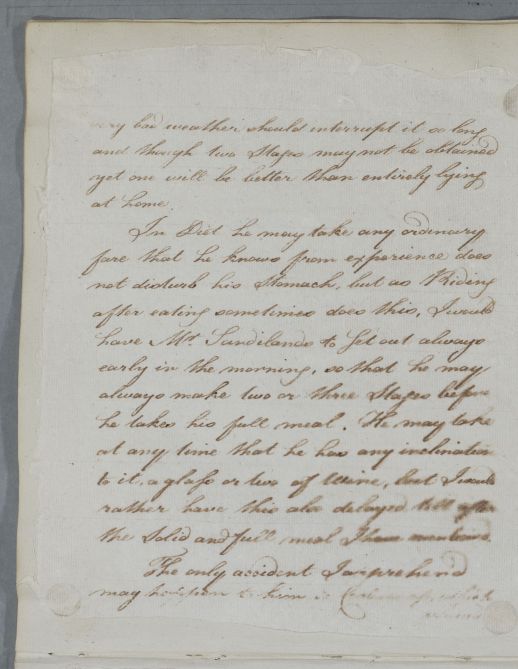 very bad weather should interrupt it so long
and though two Stages may not be obtained
yet one will be better than entirely lying
at home.
In Diet he may take any ordinary
fare that he knows from experience does
not disturb his Stomach, but as Riding
after eating sometimes does this, I would
have Mr. Sandilands to Set out always
early in the morning, so that he may
always make two or three Stages before
he takes his full meal. He may take
at any time that he has any inclination
to it, a glass or two of Wine, but I would
rather have this also delayed till after
the Solid and full meal I have mentiond.
The only accident I apprehend
may happen to him is